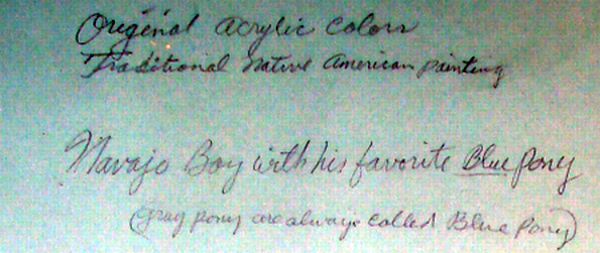 Original Acrylic Colors
Traditional Native American painting
Navajo Boy with his favorite Blue Pony
(gray pony are always called Blue Pony)